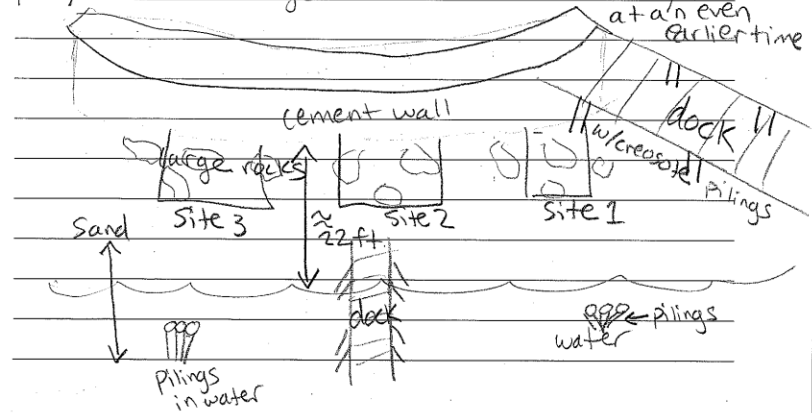 at a'n even
earlier time
cement wall
dock
w/creosote pilings
large rocks
Site 3
Site 2
Site 1
Sand
≈
22 ft
dock
pilings
water
pilings
in water